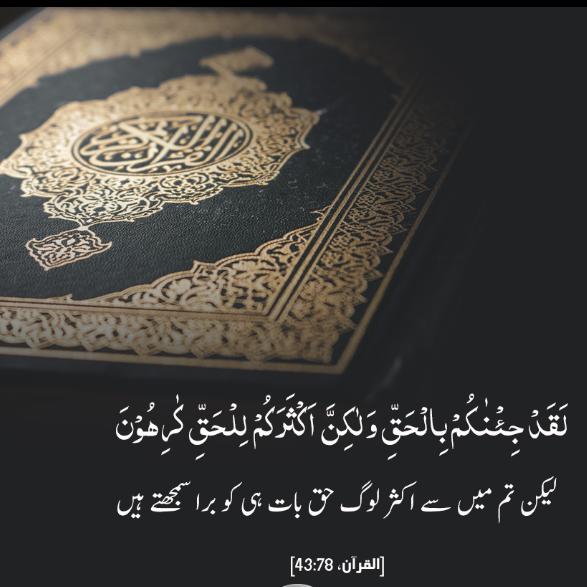 القرآن الكريم
لَقَدۡ جِئۡنٰكُمۡ بِالۡحَـقِّ وَلٰـكِنَّ اَكۡثَرَكُمۡ لِلۡحَقِّ كٰرِهُوۡنَ
لیکن تم میں سے اکثر لوگ حق بات ہی کو برا سمجھتے ہیں
[القرآن، 43:78]